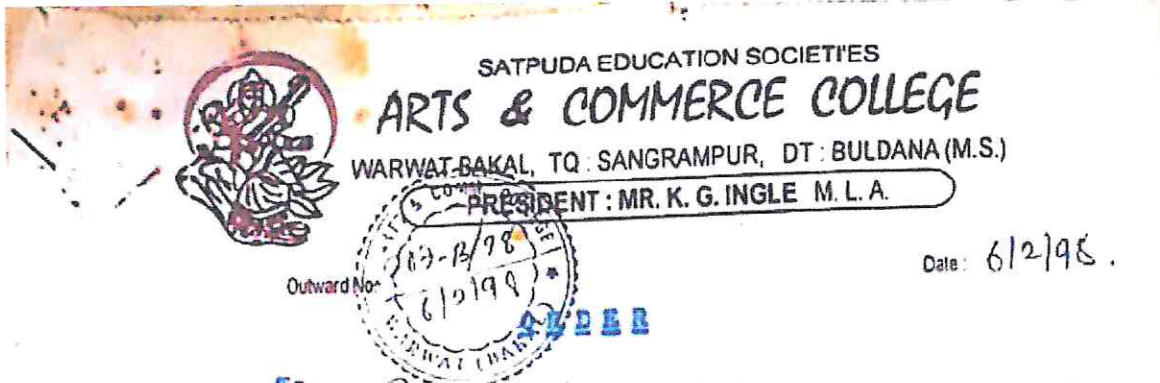 SATPUDA EDUCATION SOCIETI'ES
ARTS & COMMERCE COLLEGE
WARWAT-BAKAL, TQ : SANGRAMPUR, DT : BULDANA (M.S.)
PRESIDENT : MR. K. G. INGLE M. L. A.
Date : 6/2/98.
Outward No-
6/2/98
ORDER
To